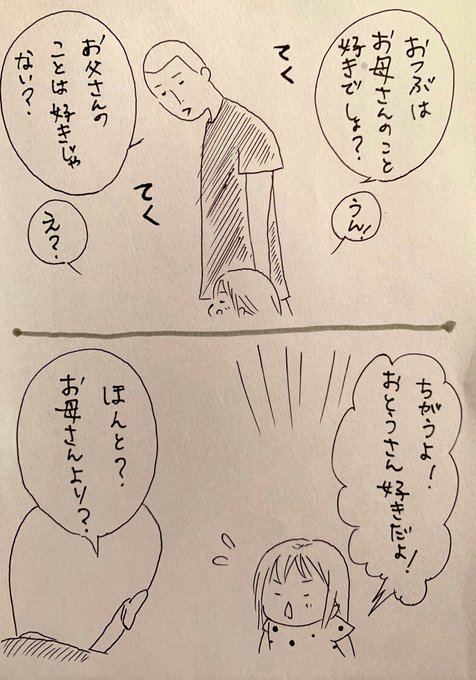 おつぶは
お母さんのこと
好きでしょ？
うん！
てく
てく
お父さんの
ことは好きじゃ
ない？
え？
ちがうよ！
おとうさん好きだよ！
ほんと？
お母さんより？